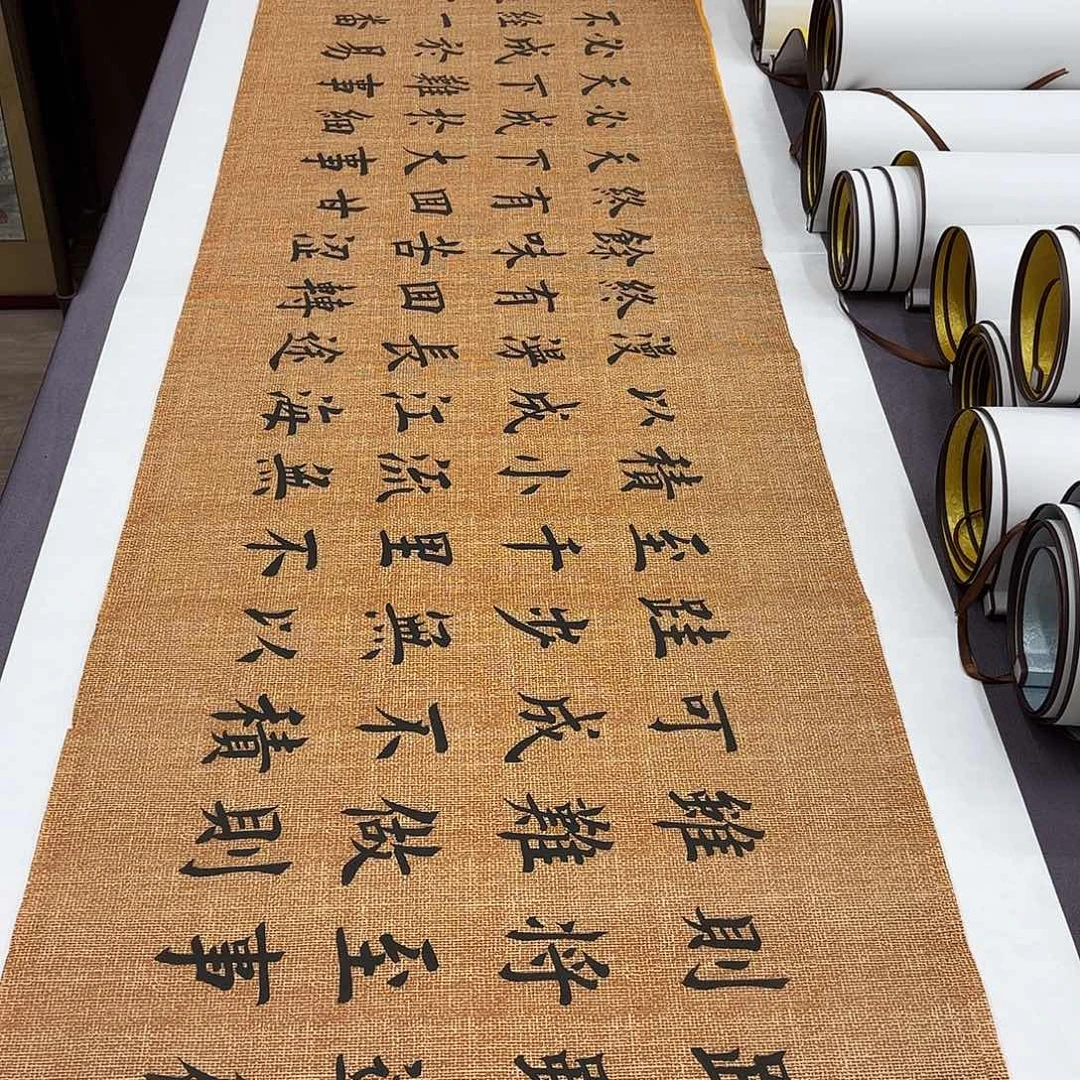 則將至事
雖難做則
可成不積
跬步無以
至千里不
積小流無
以成江海
漫漫長途
終有回轉
餘味苦澀
終有回甘
天下大事
必成於細
天下難事
必成於易
不經一番